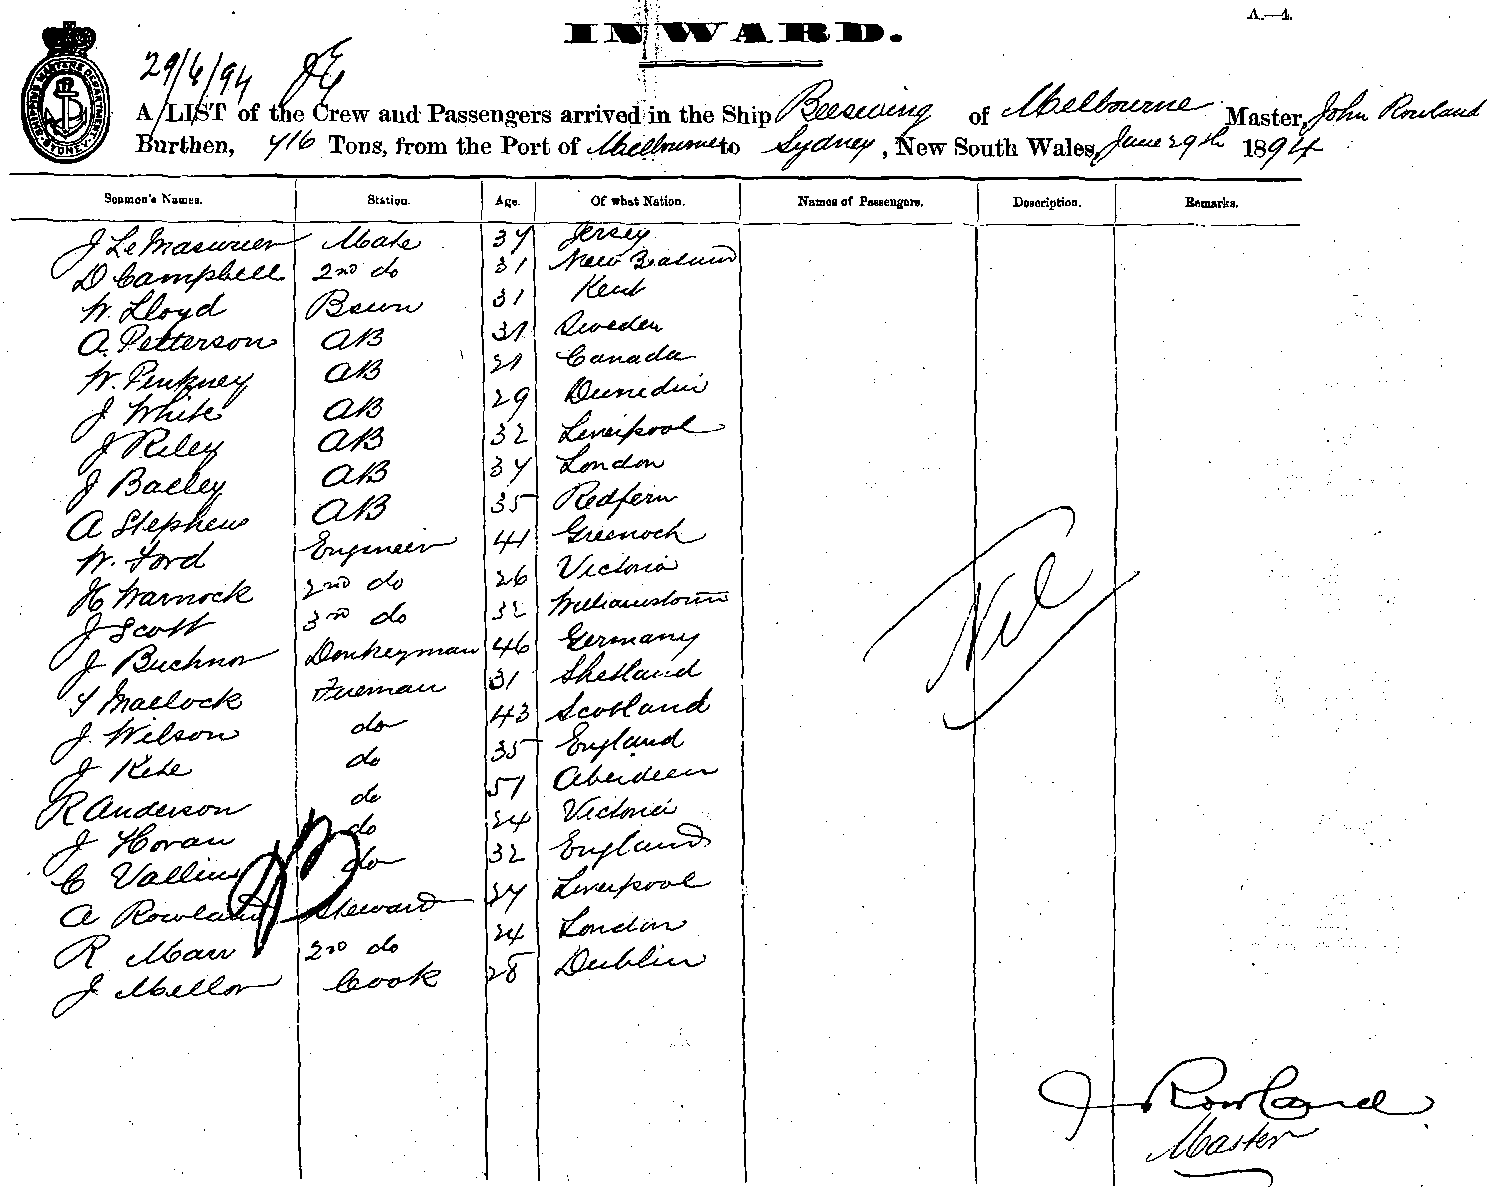 A.—4.
INWARD.
29/6/94
A LIST of the Crew and Passengers arrived in the Ship Beeswing of Melbourne Master, John Rowland
Burthen, 416 Tons, from the Port of Melbourne to Sydney, New South Wales, June 29th 1894
Seamen's Names. Station. Age. Of what Nation. Names of Passengers. Description. Remarks.
J Le Masurier Mate 37 Jersey
D Campbell 2nd do 31 New Zealand
W. Lloyd Bswn 31 Kent
A. Petterson AB 31 Sweden
W. Pinkney AB 21 Canada
J White AB 29 Dunedin
J Riley AB 32 Liverpool
J Bailey AB 37 London
A Stephens AB 35 Redfern
W. Ford Engineer 41 Greenock
H Warnock 2nd do 26 Victoria
J Scott 3rd do 32 Williamstown
J Buchnor Donkeyman 46 Germany
Fireman 31 Shetland
J. Wilson do 43 Scotland
J do 35 England
R Anderson do 51 Aberdeen
J Horan do 24 Victoria
C Vallin do 32 England
A Rowland Steward 27 Liverpool
R Marr 2nd do 24 London
J Mellor Cook 28 Dublin
Nil
J Rowland
Master